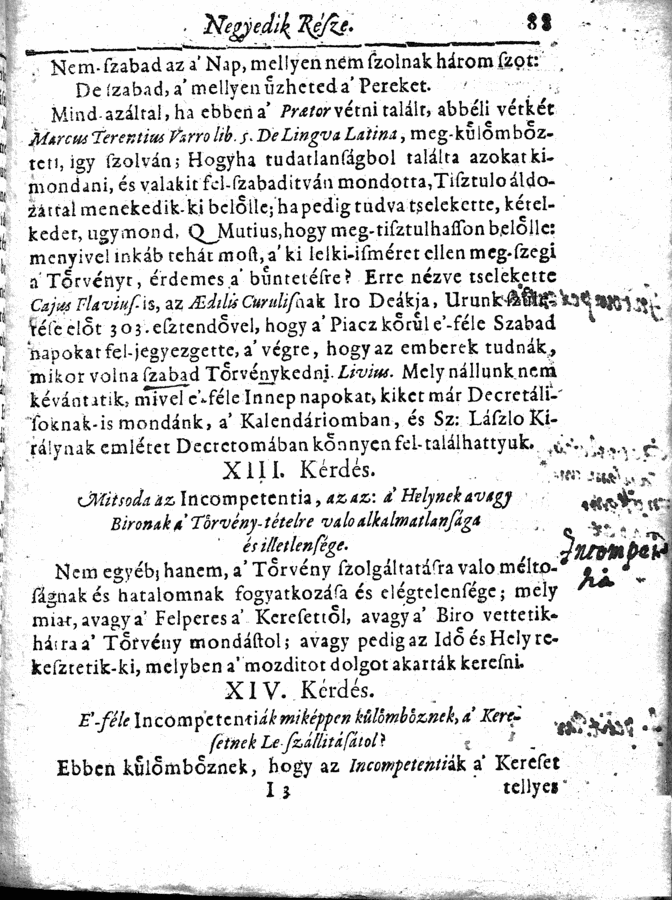 Negyedik Réſze. 88
Nem-ſzabad az a' Nap, mellyen nem ſzolnak három ſzot:
De ſzabad, a' mellyen űzheted a' Pereket.
Mind-azáltal, ha ebben a' Prætor vétni talált, abbéli vétkét
Marcus Terentius Varro lib. 5. De Lingva Latina, meg-kůlőmbőz-
teti, igy ſzolván; Hogyha tudatlanſágbol találta azokat ki-
mondani, és valakit fel-ſzabaditván mondotta, Tiſztulo áldo-
zattal menekedik-ki belőlle; ha pedig tudva tselekette, kétel-
kedet, ugymond, Q Mutius, hogy meg-tiſztulhaſſon belőlle:
menyivel inkáb tehát moſt, a' ki lelki-iſméret ellen meg-ſzegi
a' Tőrvényt, érdemes a' bůntetéſre? Erre nézve tselekette
Cajus Flaviuſ is, az Ædilis Curuliſnak Iro Deákja, Urunk
téſe előt 303. eſztendővel, hogy a' Piacz kőrůl e'-féle Szabad
napokat fel-jegyezgette, a' végre, hogy az emberek tudnák,
mikor volna ſzabad Tőrvénykedni. Livius. Mely nállunk nem
kévántatik, mivel e'-féle Innep napokat, kiket már Decretáli-
ſoknak-is mondánk, a' Kalendáriomban, és Sz: Láſzlo Ki-
rálynak emlétet Decretomában kőnnyen fel-találhattyuk.
XIII. Kérdés.
Mitsoda az Incompetentia, az az: a' Helynek avagy
Bironak a' Tőrvény-tételre valo alkalmatlanſága
és illetlenſége.
Nem egyéb; hanem, a' Tőrvény ſzolgáltatáſra valo mélto-
ſágnak és hatalomnak fogyatkozáſa és elégtelenſége; mely
miat, avagy a' Felperes a' Kereſettől, avagy a' Biro vettetik-
hátra a' Tőrvény mondáſtol; avagy pedig az Idő és Hely re-
keſztetik-ki, melyben a' mozditot dolgot akarták kereſni.
Incompeten
XIV. Kérdés.
E'-féle Incompetentiák miképpen kůlőmbőznek, a' Kere-
ſetnek Le-ſzállitáſátol?
Ebben kůlőmbőznek, hogy az Incompetentiák a' Kereſet
I 3 tellyes